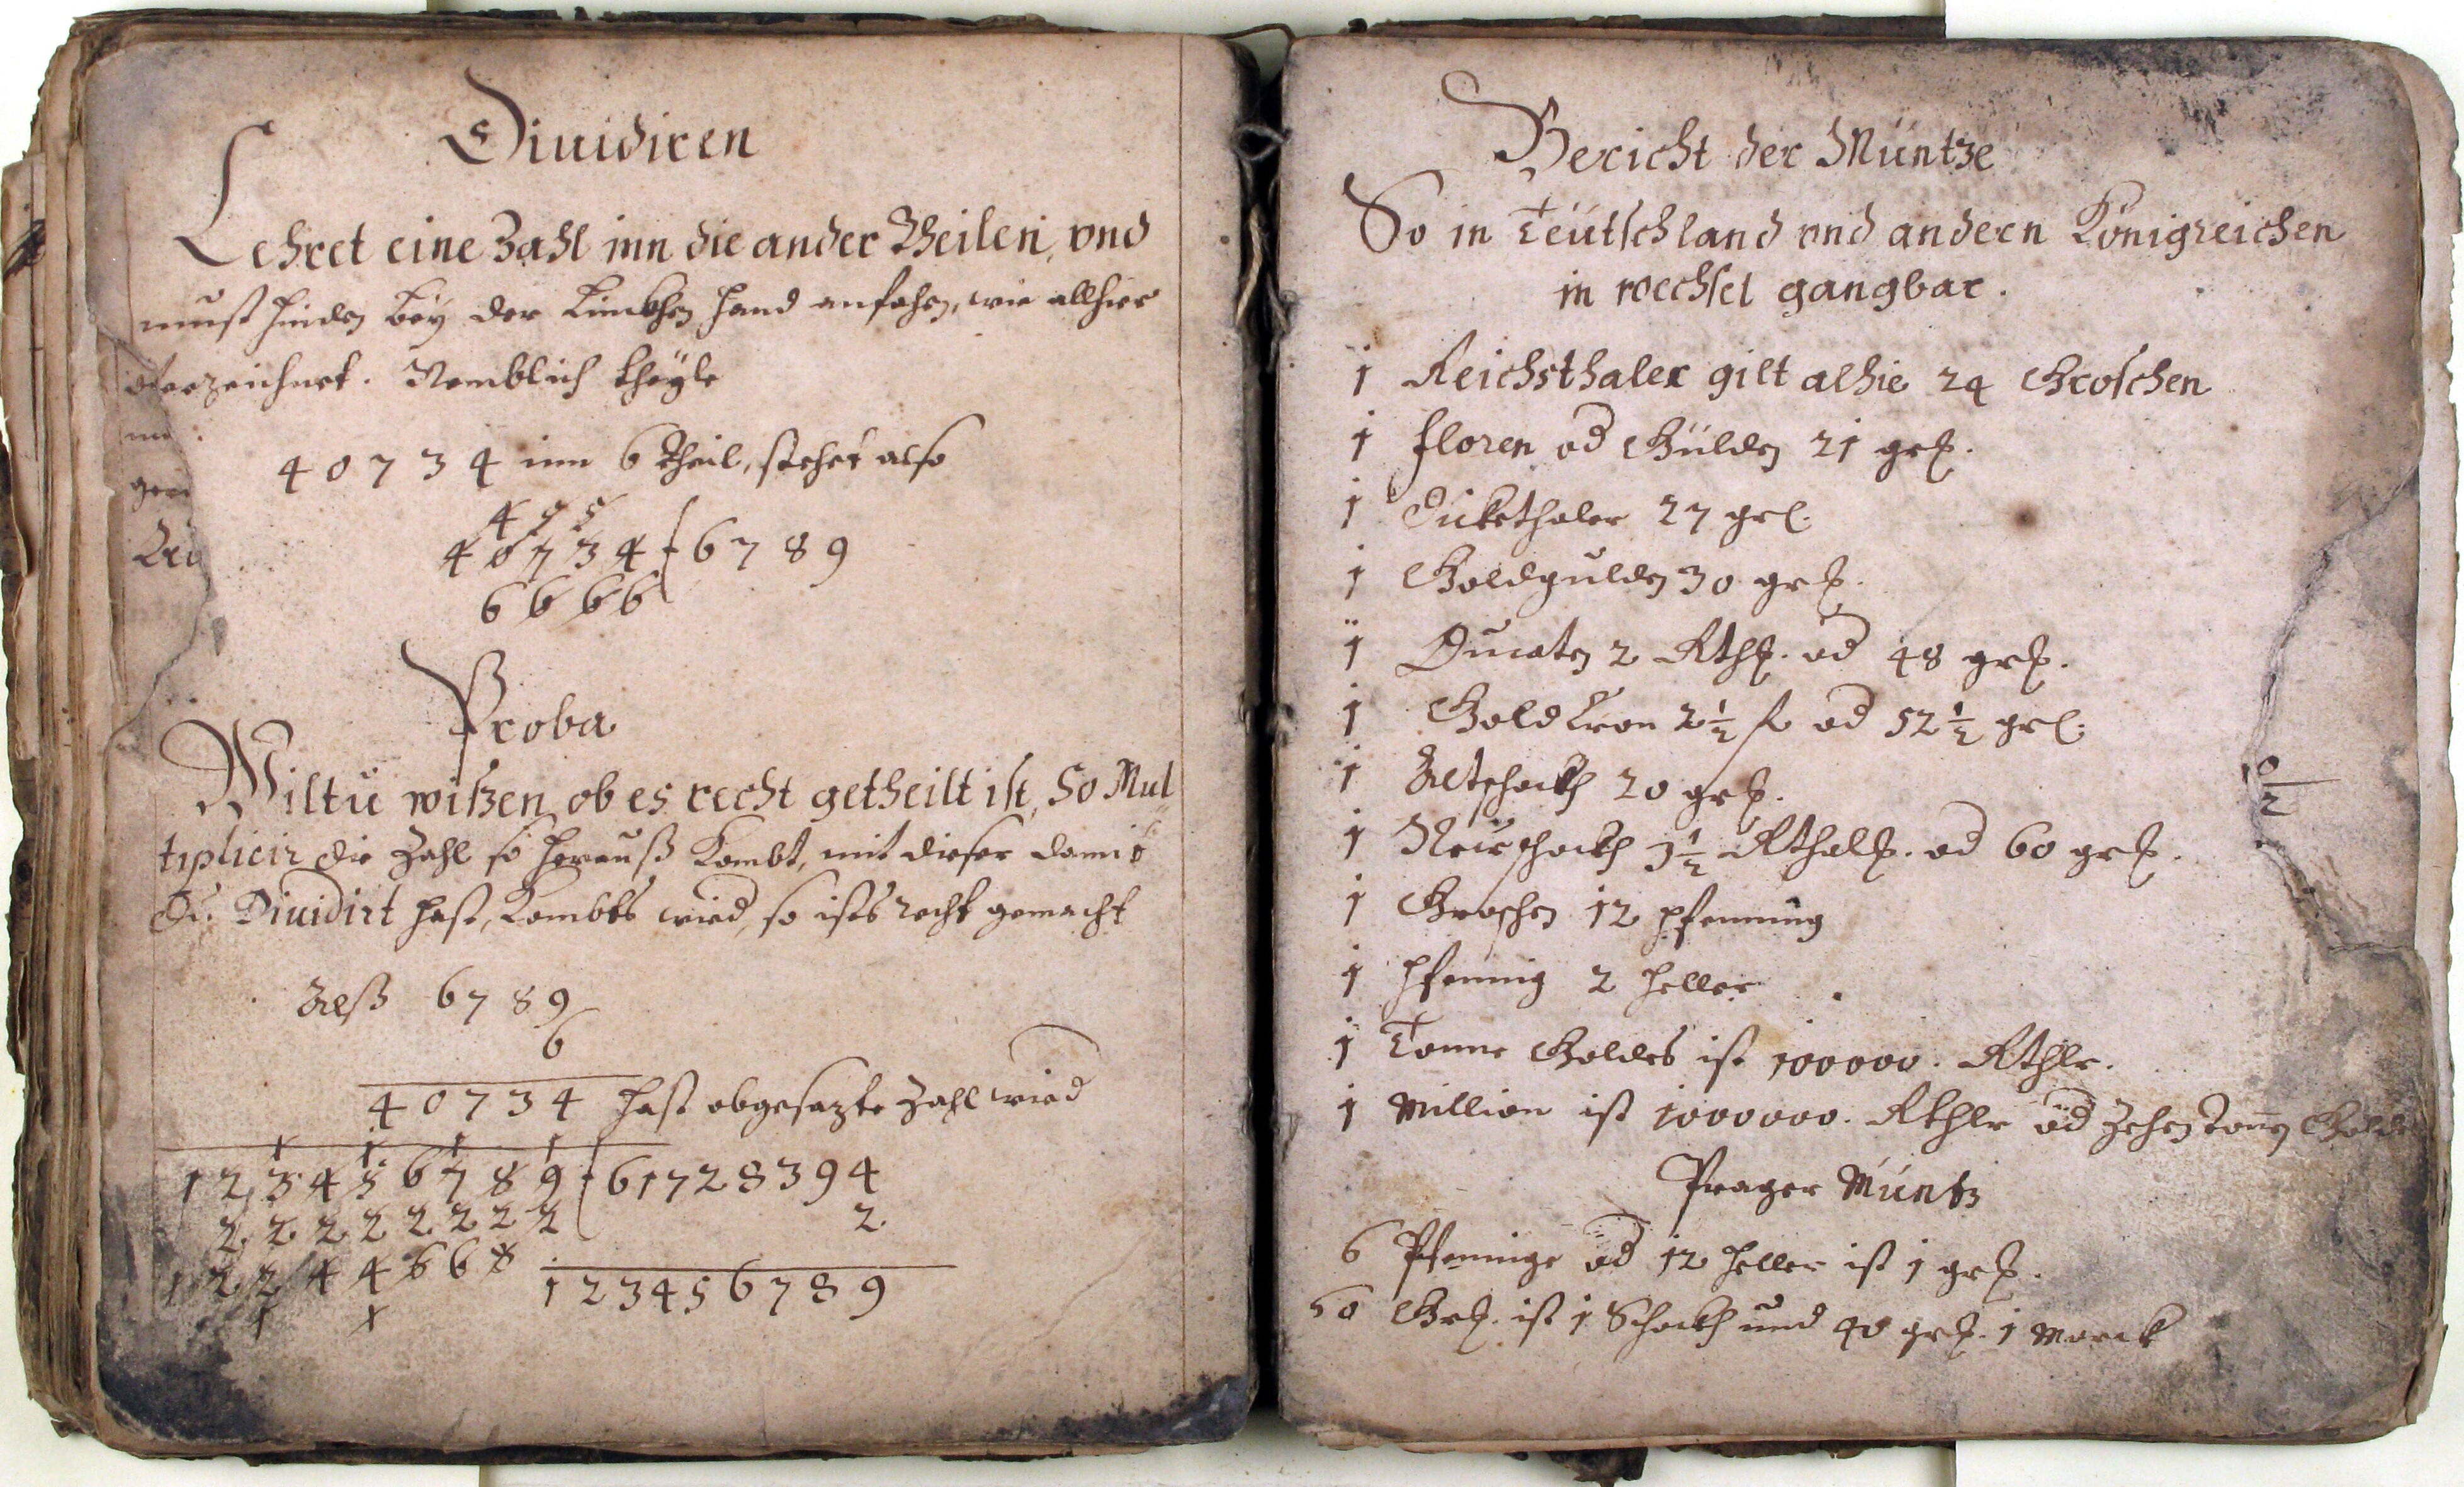 Diuidiren
Lehret eine Zahl inn die ander Theilen, vnd
must hinden beÿ der Linckhen hand anfahen, wie allhier
verzeichnet. Nemblich theÿle
40734 inn 6 Theil, stehet also
4 4 5 5
40734 ( 6789
6666
Proba
Wiltu wißen ob es recht getheilt ist, So Mul
tiplicir die Zahl so herauß kombt, mit dieser damit
Du Diuidirt hast, kombts wied, so ists recht gemacht
Alß 6789
6
40734 hast obgesazte Zahl wied
1 1 1 1
123456789 ( 61728394
22222222 2
12244668 123456789
1 1
Bericht der Müntze
So in Teütschland vnd andern Königreichen
in wechsel gangbar.
1 Reichsthaler gilt alhie 24 Groschen
1 floren od Gülden 21 grl.
1 Dickethaler 27 grl.
1 Goldgulden 30 grl.
1 Ducaten 2 Rthl. od 48 grl.
1 Gold Cron 2½ fl od 52½ grl.
1 Altschockh 20 grl.
1 Neüschockh 3½ Rthall. od 60 grl.
1 Groschen 12 pfenning
1 Pfennig 2 heller
1 Tonne Goldes ist 100000. Rthlr.
1 Million ist 1000000. Rthlr od Zehen Tonn Golde
Prager Müntz
6 Pfenninge od 12 heller ist 1 grl.
50 Grl. ist 1 Schockh und 40 grl. 1 Marck
0
2